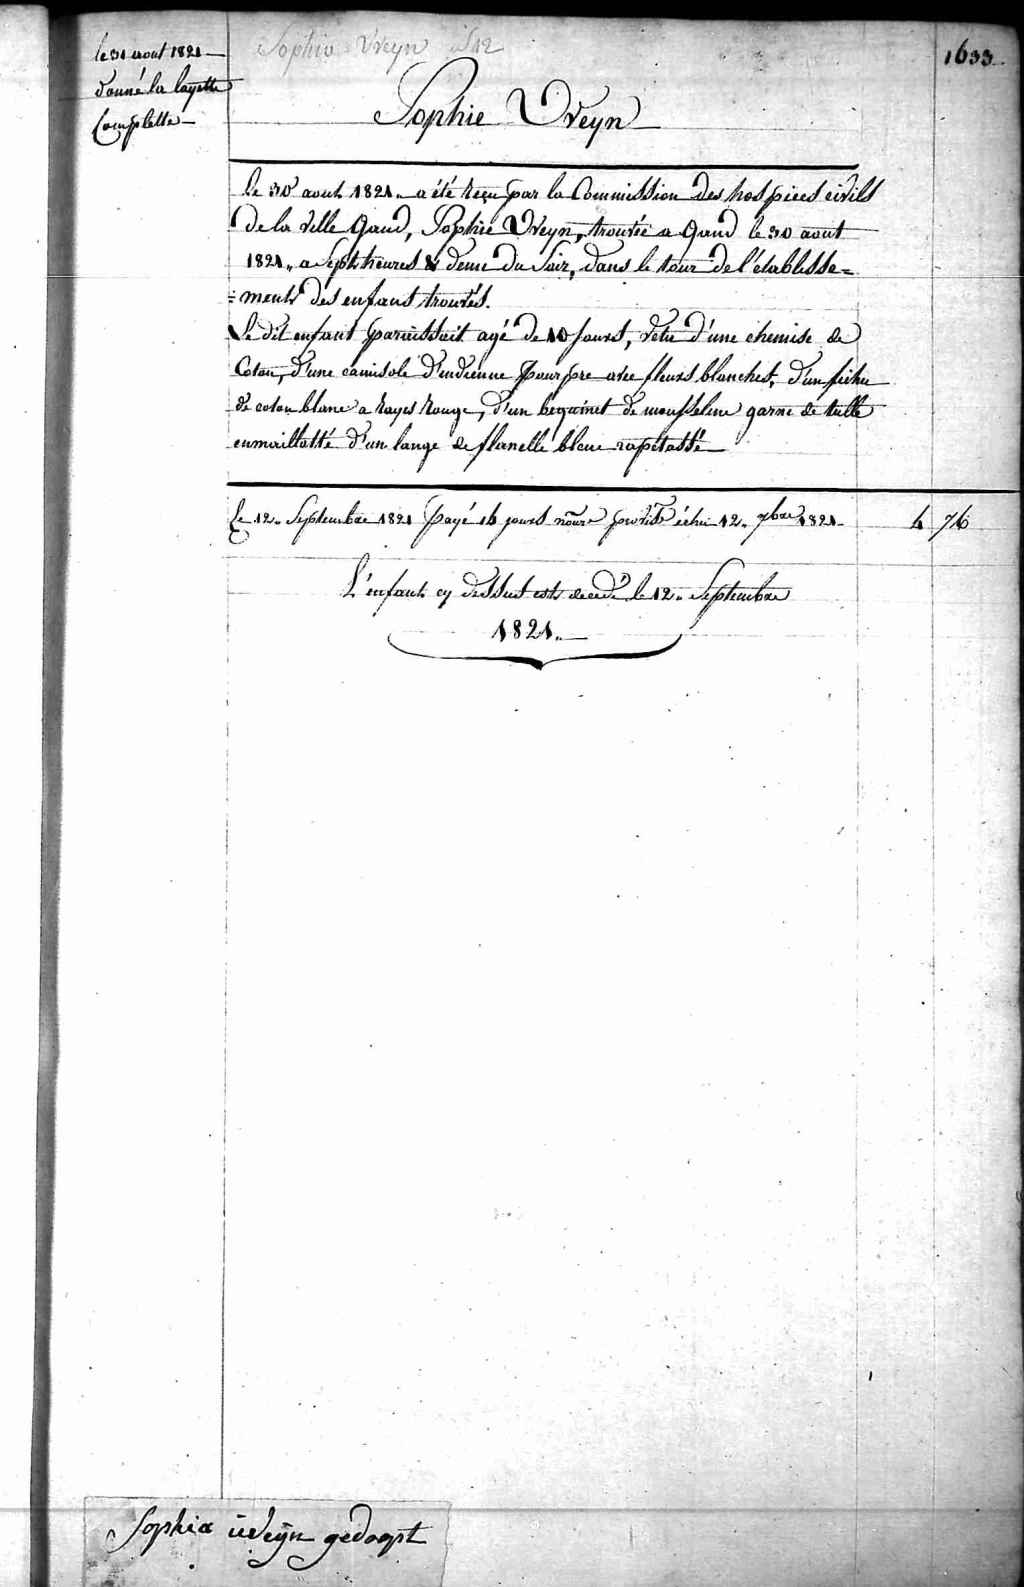 le 31 aout 1821
donné la layette
Complette
Sophie Vveyn
1633
Sophie Vveyn
le 30 aout 1821 „ a été reçu par la Commission des hospices civils
de la ville Gand, Sophie Vveyn, trouvée a Gand le 30 aout
1821 „ a Sept heures & demi du Soir, dans le tour de l'etablisse=
=ment des enfans trouvés.
Le dit enfant paraissait agé de 10 jours, vetu d'une chemise de
Coton, d'une camisole d'indienne pourpre avec fleurs blanches, d'un fichu
de coton blanc a rayes rouge, d'un beguinet de mousseline garni de tulle
enmaillotté d'un lange de flanelle bleue rapetassé
Le 12 „ Septembre 1821 payé jours échu 12 „ 7bre 1821 4 76
L'enfant cy dessus est decedé le 12 „ Septembre
1821 „
Sophia üveijn gedoopt